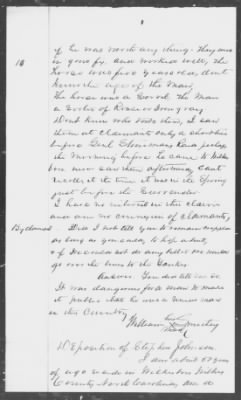 if he was worth any thing. They was
in good fix, and worked well, the
horse was five years old, dont
know the age of the Mare,
The horse was a Sorrel the Mare
a sorter of Roan or Iron gray
Dont know who rode them, I saw
them at claimants only a short time
before Genl Stoneman's Raid perhaps
the morning before he came to Wilkes
boro never saw them afterward, Cant
recollect the time it was in the Spring
just before the Surrender.
I have no interest in this claim
and am no
By claimant. Did I not tell you to remain
as long as you could, to hope a bout,
if did not do any better we would
go over the lines to the Yankees
Answer You did tell me so
It was dangerous for a man to make
it public that he was a Union man
in this Country
William his X mark
Deposition of Stephen Johnson.
I am about 50 years
of age reside in Wilkesboro Wilkes
County North Carolina, am a